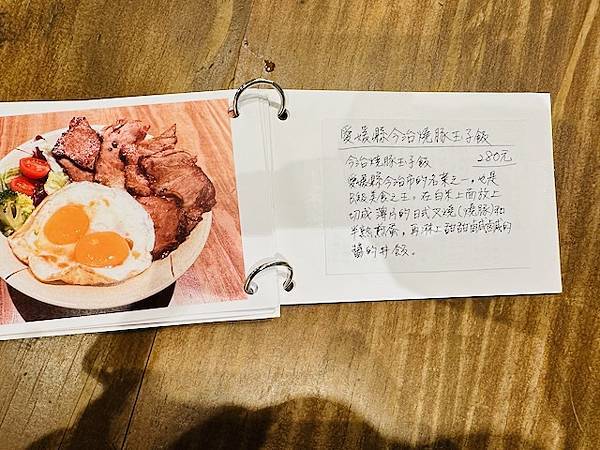 愛媛縣今治燒豚玉子飯
今治燒豚玉子飯 280元
愛媛縣今治市的名菜之一,也是
B級美食之王。在白米上面放上
切成薄片的日式叉燒(燒豚)和
半熟煎蛋,再淋上甜甜鹹鹹的
醬的丼飯。